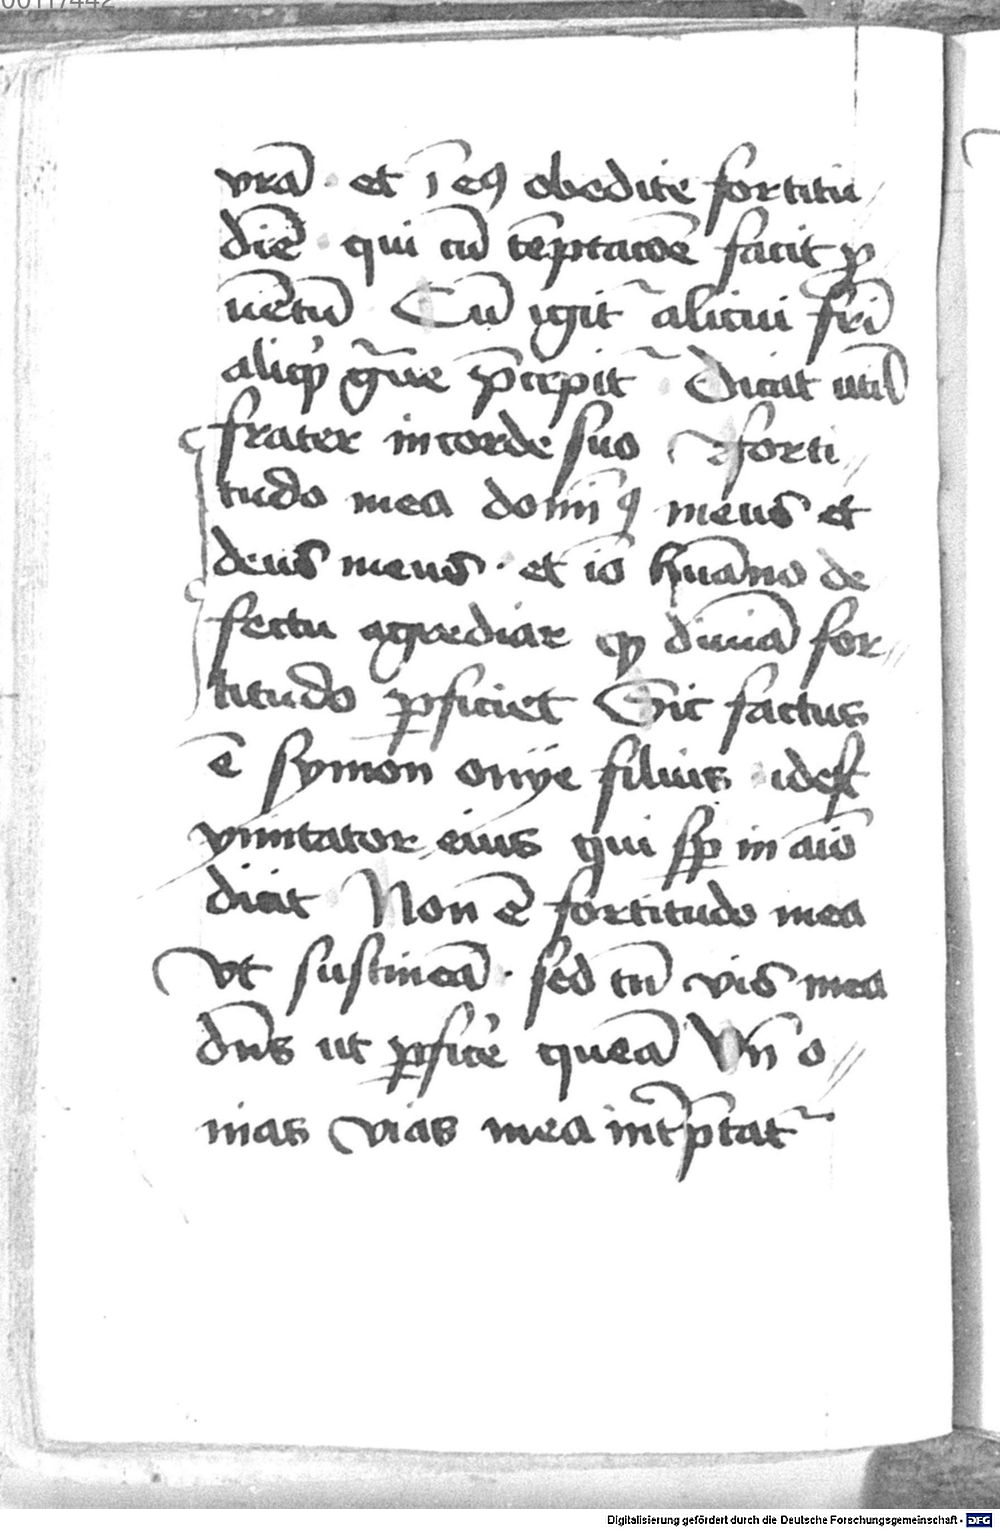 00117442
vrā · et ī eꝯ obedite fortitu
diē · qui cū tēptacōe facit ꝓ
uētū Cū igit᷑ alicui fr̄i
aliqꝫ gᷓue p̄cipit᷑ · Dicat util̄
frater in corde suo forti
tudo mea domīꝯ meus et
deus meus · et iō hūano de
fectu agrediar qꝫ diuīa for
titudo ꝑficiet Sic factus
ē symon onye filius · idest
ymitator eius qui sꝑ in aīo
dicit Non ē fortitudo mea
vt sustineā · sed tū vis mea
dn̄s ut ꝑficˀe queā Vn̄ o
nias vias mea int̄p̄tat᷑
Digitalisierung gefördert durch die Deutsche Forschungsgemeinschaft - DFG